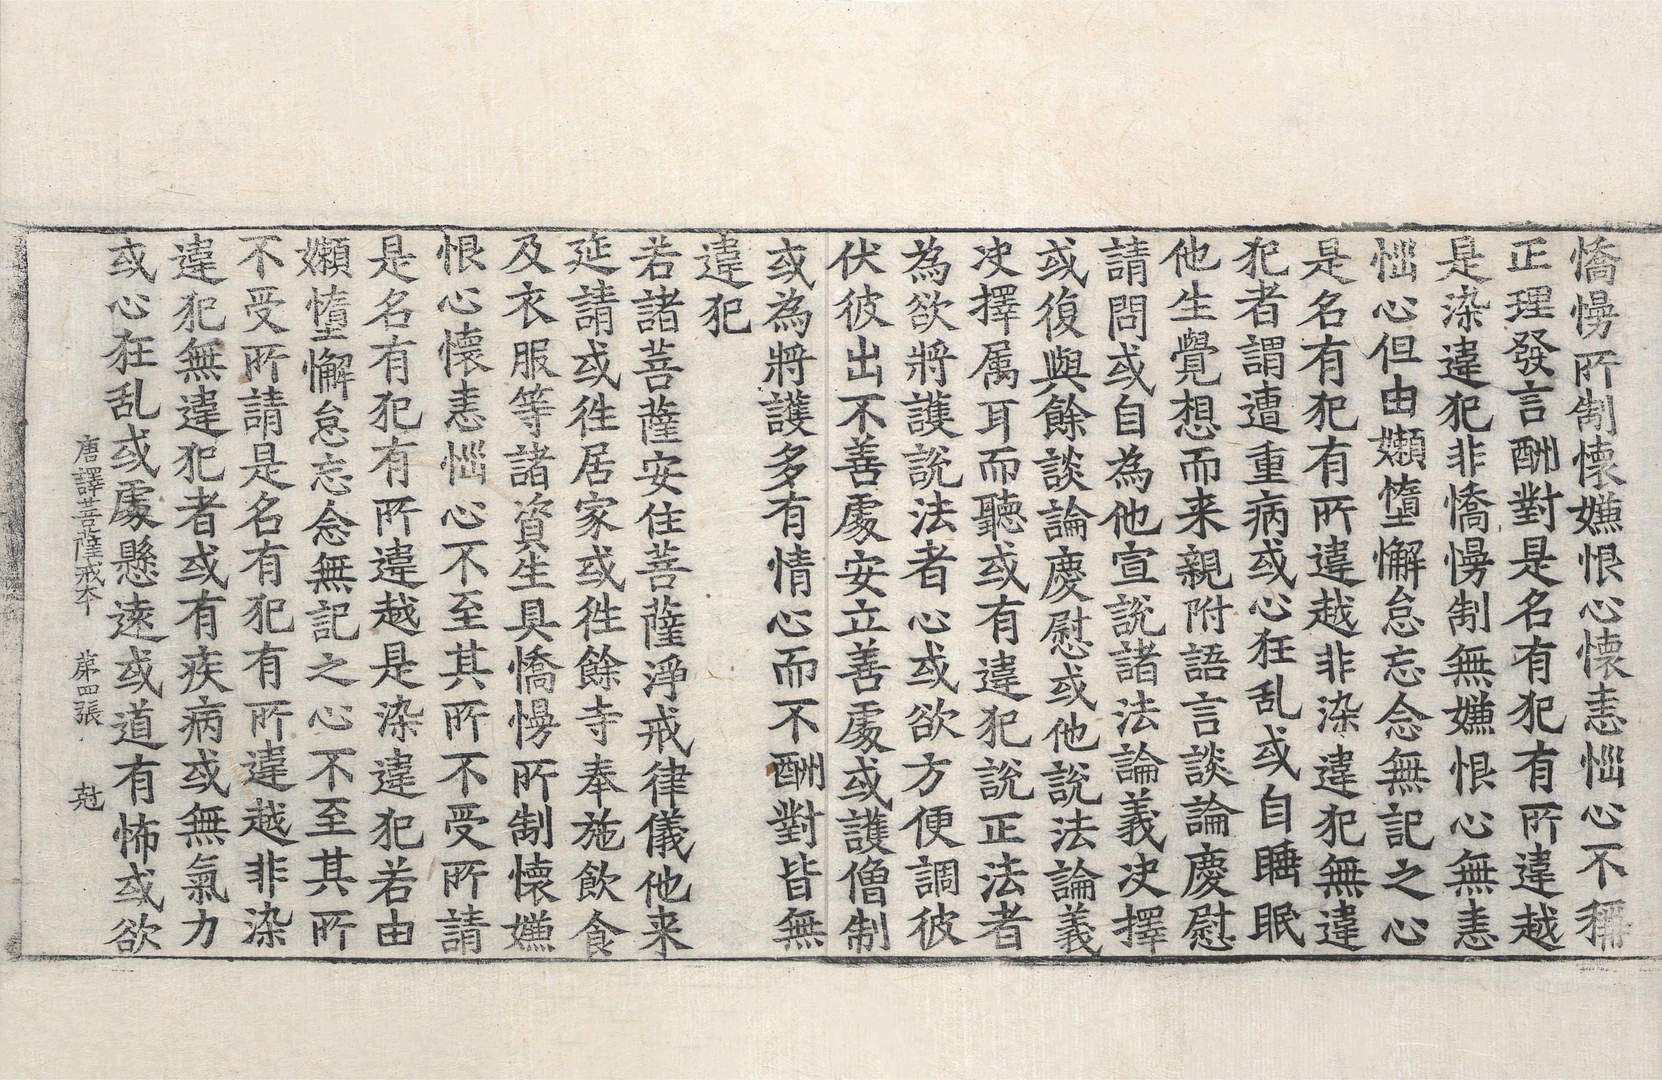 憍慢所制懷嫌恨心懷恚惱心不稱
正理發言酬對是名有犯有所違越
是染違犯非憍慢制無嫌恨心無恚
惱心但由嬾墮懈怠忘念無記之心
是名有犯有所違越非染違犯無違
犯者謂遭重病或心狂乱或自睡眠
他生覺想而来親附語言談論慶慰
請問或自為他宣說諸法論義决擇
或復與餘談論慶慰或他說法論義
决擇属耳而聽或有違犯說正法者
為欲將護說法者心或欲方便調彼
伏彼出不善處安立善處或護僧制
或為將護多有情心而不酬對皆無
違犯
若諸菩薩安住菩薩淨戒律儀他来
延請或徃居家或徃餘寺奉施飲食
及衣服等諸資生具憍慢所制懷嫌
恨心懷恚惱心不至其所不受所請
是名有犯有所違越是染違犯若由
嬾墮懈怠忘念無記之心不至其所
不受所請是名有犯有所違越非染
違犯無違犯者或有疾病或無氣力
或心狂乱或處懸遠或道有怖或欲
唐譯菩薩戒本 第四張 尅